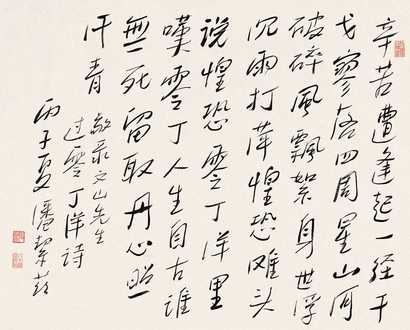 辛苦遭逢起一经干
戈寥落四周星山河
破碎風飘絮身世浮
沉雨打萍惶恐滩头
说惶恐零丁洋里
嘆零丁人生自古谁
無死留取丹心照
汗青
敬录文山先生
过零丁洋诗
丙子夏潘絜兹